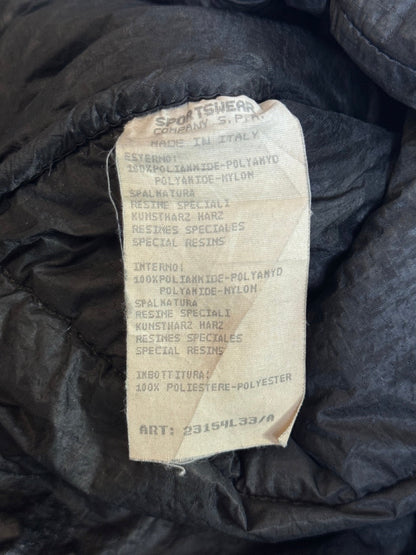 SPORTSWEAR
COMPANY S.P.A.
MADE IN ITALY
ESTERNO:
100%POLIAMMIDE-POLYAMYD
POLYAMIDE-NYLON
SPALMATURA
RESINE SPECIALI
KUNSTHARZ HARZ
RESINES SPECIALES
SPECIAL RESINS
INTERNO:
100%POLIAMMIDE-POLYAMYD
POLYAMIDE-NYLON
SPALMATURA
RESINE SPECIALI
KUNSTHARZ HARZ
RESINES SPECIALES
SPECIAL RESINS
IMBOTTITURA:
100% POLIESTERE-POLYESTER
ART: 23154L33/A